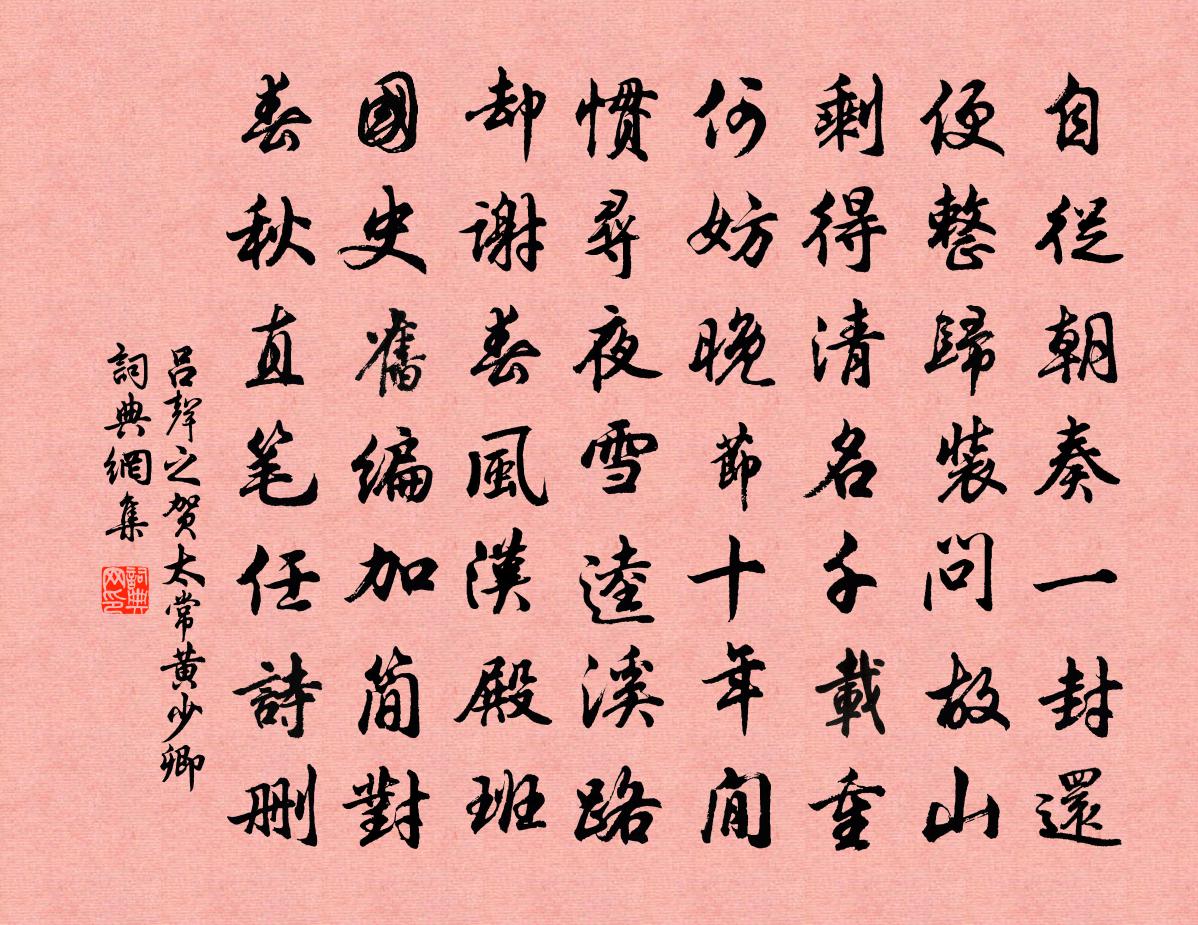 自從朝奏一封還
便整歸裝問故山
剩得清名千載重
何妨晚節十年閒
慣尋夜雪逵溪路
却謝春風漢殿班
國史舊編加简對
春秋直笔任詩删
呂聲之贺太常黄少卿
詞典網集
詞典网印